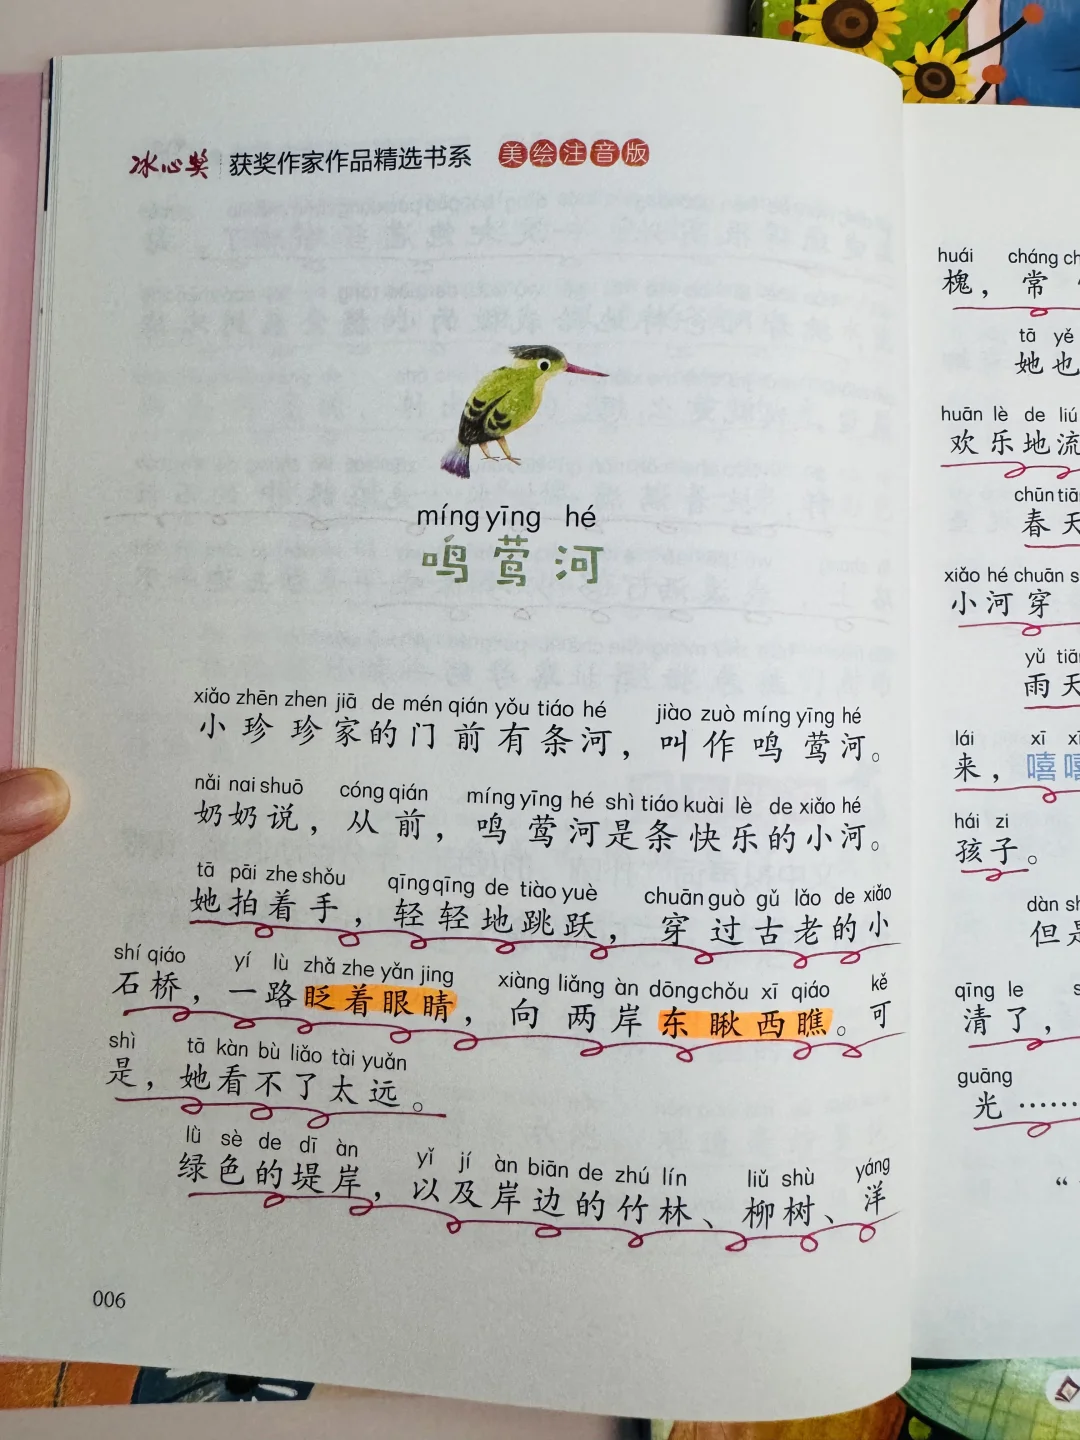 冰心奖 获奖作家作品精选书系 美绘注音版
míng yīng hé
鸣莺河
xiǎo zhēn zhen jiā de mén qián yǒu tiáo hé jiào zuò míng yīng hé
小珍珍家的门前有条河，叫作鸣莺河。
nǎi nai shuō cóng qián míng yīng hé shì tiáo kuài lè de xiǎo hé
奶奶说，从前，鸣莺河是条快乐的小河。
tā pāi zhe shǒu qīng qīng de tiào yuè chuān guò gǔ lǎo de xiǎo
她拍着手，轻轻地跳跃，穿过古老的小
shí qiáo yí lù zhǎ zhe yǎn jing xiàng liǎng àn dōng chǒu xī qiáo kě
石桥，一路眨着眼睛，向两岸东瞅西瞧。可
shì tā kàn bù liǎo tài yuǎn
是，她看不了太远。
lǜ sè de dī àn yǐ jí àn biān de zhú lín liǔ shù yáng
绿色的堤岸，以及岸边的竹林、柳树、洋
006
huái cháng
槐，常
tā yě
她也
huān lè de liú
欢乐地流
chūn tiān
春天
xiǎo hé chuān
小河穿
yǔ tiān
雨天
lái xī xī
来，嘻嘻
hái zi
孩子。
dàn shì
但是
qīng le
清了，
guāng
光……
“